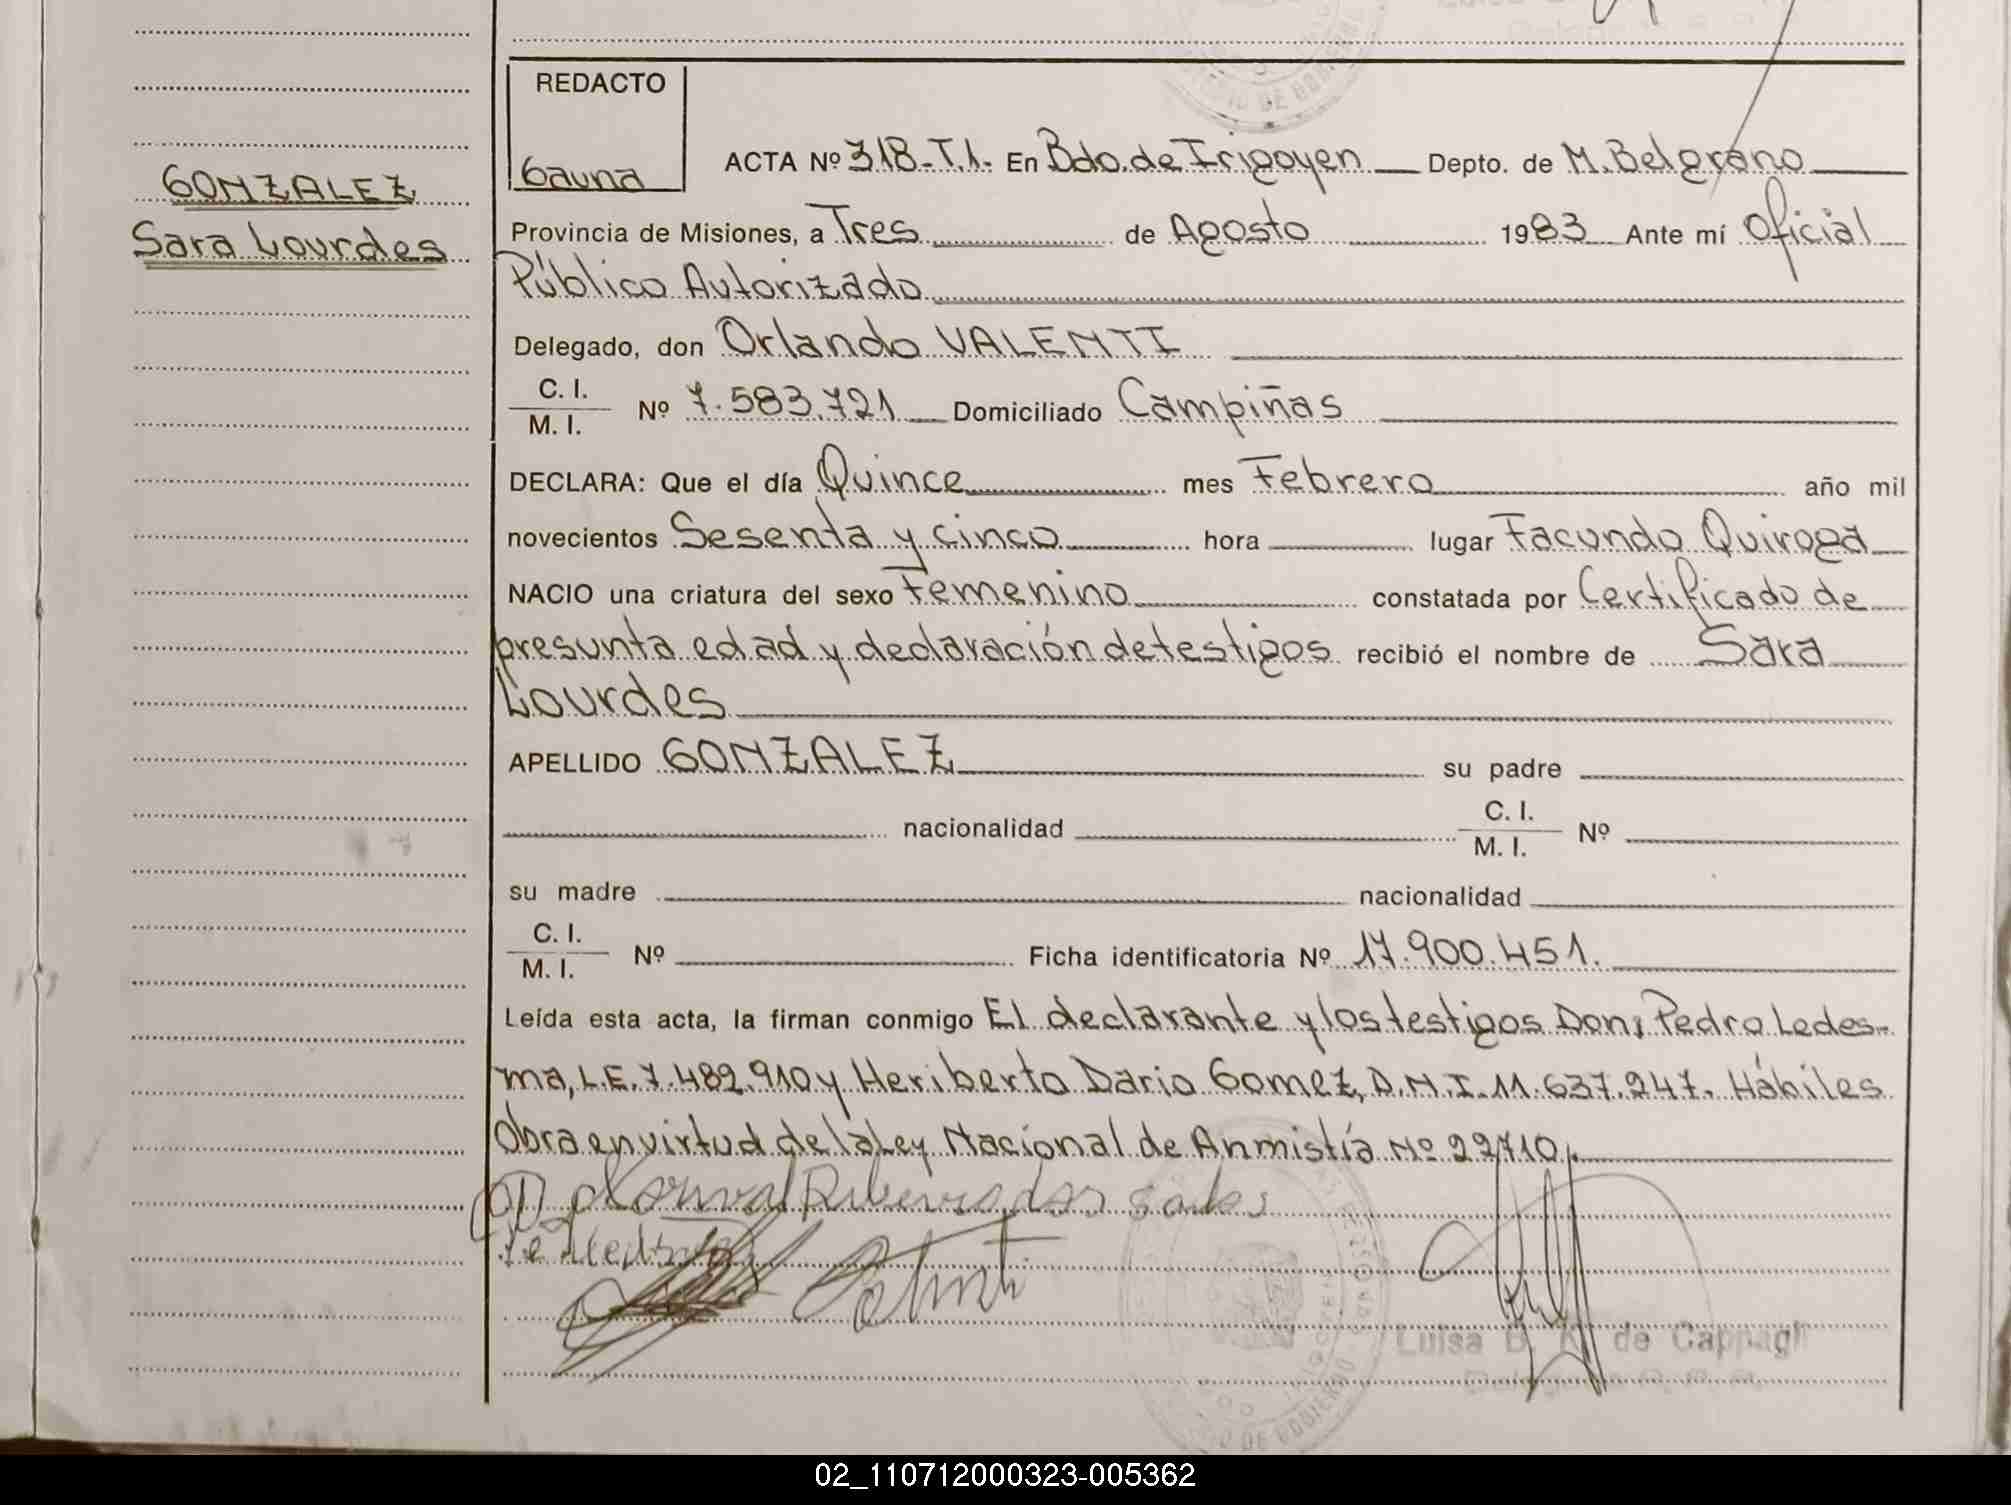 REDACTO
Gauna
GONZALEZ
Sara Lourdes
ACTA Nº 318-T.1. En Bdo. de Irigoyen Depto. de M. Belgrano
Provincia de Misiones, a Tres de Agosto 1983 Ante mí Oficial
Público Autorizado
Delegado, don Orlando VALENTI
C. I.
M. I. Nº 7.583.721 Domiciliado Campiñas
DECLARA: Que el día Quince mes Febrero año mil
novecientos Sesenta y cinco hora lugar Facundo Quiroga
NACIO una criatura del sexo Femenino constatada por Certificado de
presunta edad y declaración de testigos recibió el nombre de Sara
Lourdes
APELLIDO GONZALEZ su padre
nacionalidad C. I. M. I. Nº
su madre nacionalidad
C. I.
M. I. Nº Ficha identificatoria Nº 17.900.451.
Leída esta acta, la firman conmigo El declarante y los testigos Don, Pedro Ledes-
ma, L.E. 7.482.910 y Heriberto Dario Gomez, D.N.I. 11.637.247. Hábiles
Obra en virtud de la Ley Nacional de Anmistía Nº 22710.
Luisa B. K. de Cappagli
02_110712000323-005362